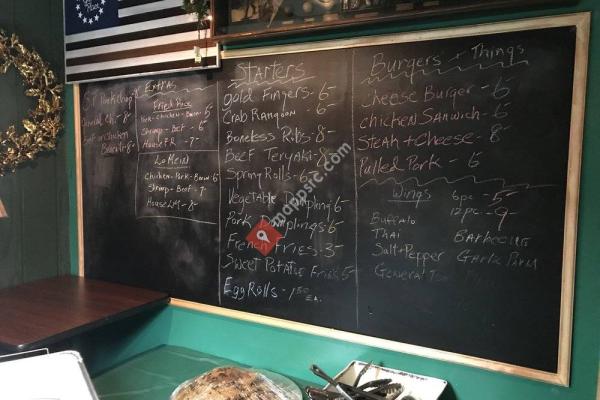 Place
Extras
ST Pork chop
8-
Beef or chicken
Fried Rice
Pork-Chicken-Bacon 5
Shrimp-Beef - 6
House F.R - 7-
Lo Mein
Chicken-Pork-Bacon 6-
Shrimp-Beef - 7-
House LM - 8-
Starters
Gold Fingers - 6
Crab Rangoon 6
Boneless Ribs - 8-
Beef Teryaki - 8
Spring Rolls - 6
Vegetable Dumpling 6
Pork Dumplings - 6
French Fries - 3.5
Sweet Potatoe Fries 5
Egg Rolls - 1.50 EA.
mappsic.com
Burgers + Things
Cheese Burger - 6-
Chicken Sandwich - 6-
Steak + Cheese - 8
Pulled Pork - 6
Wings
6pc - 5-
12pc - 9-
Buffalo
Thai
Barbecue
Salt + Pepper
Garlic Parm
General Tso